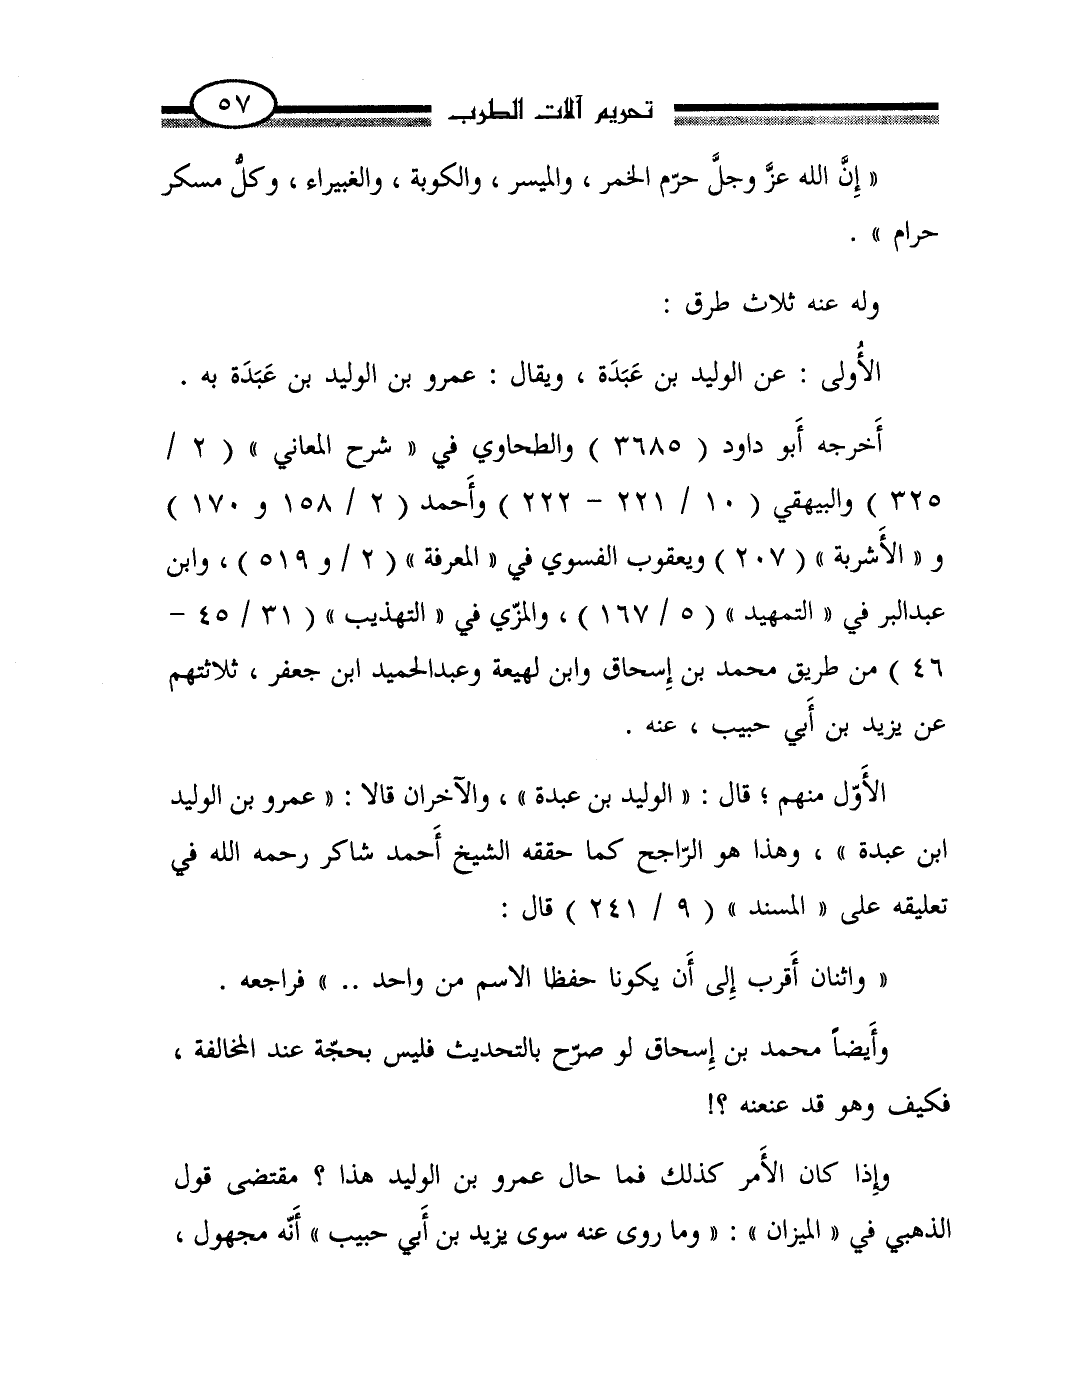 تحريم آلات الطرب ٥٧
« إِنَّ الله عزَّ وجلَّ حرّم الخمر ، والميسر ، والكوبة ، والغبيراء ، وكلُّ مسكر
حرام » .
وله عنه ثلاث طرق :
الأُولى : عن الوليد بن عَبَدَة ، ويقال : عمرو بن الوليد بن عَبَدَة به .
أَخرجه أَبو داود ( ٣٦٨٥ ) والطحاوي في « شرح المعاني » ( ٢ /
٣٢٥ ) والبيهقي ( ١٠ / ٢٢١ – ٢٢٢ ) وأَحمد ( ٢ / ١٥٨ و ١٧٠ )
و « الأَشربة » ( ٢٠٧ ) ويعقوب الفسوي في « المعرفة » ( ٢ / و ٥١٩ ) ، وابن
عبدالبر في « التمهيد » ( ٥ / ١٦٧ ) ، والمزّي في « التهذيب » ( ٣١ / ٤٥ –
٤٦ ) من طريق محمد بن إِسحاق وابن لهيعة وعبدالحميد ابن جعفر ، ثلاثتهم
عن يزيد بن أَبي حبيب ، عنه .
الأَوّل منهم ؛ قال : « الوليد بن عبدة » ، والآخران قالا : « عمرو بن الوليد
ابن عبدة » ، وهذا هو الرّاجح كما حققه الشيخ أَحمد شاكر رحمه الله في
تعليقه على « المسند » ( ٩ / ٢٤١ ) قال :
« واثنان أَقرب إِلى أَن يكونا حفظا الاسم من واحد .. » فراجعه .
وأَيضاً محمد بن إِسحاق لو صرّح بالتحديث فليس بحجّة عند المخالفة ،
فكيف وهو قد عنعنه ؟!
وإِذا كان الأَمر كذلك فما حال عمرو بن الوليد هذا ؟ مقتضى قول
الذهبي في « الميزان » : « وما روى عنه سوى يزيد بن أَبي حبيب » أَنّه مجهول ،